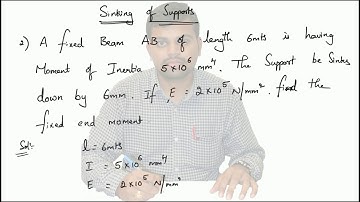 Sinking of Supports
2) A fixed Beam AB of length 6mts is having
Moment of Inertia 5×10⁶ mm⁴. The Support B Sinks
down by 6mm. If, E = 2×10⁵ N/mm². find the
fixed end moment
Sol:- l = 6mts
I = 5×10⁶ mm⁴
E = 2×10⁵ N/mm²